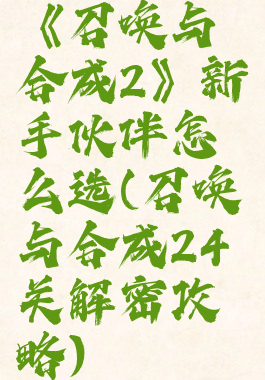 《召唤与
合成2》新
手伙伴怎
么选(召唤
与合成24
关解密攻
略)